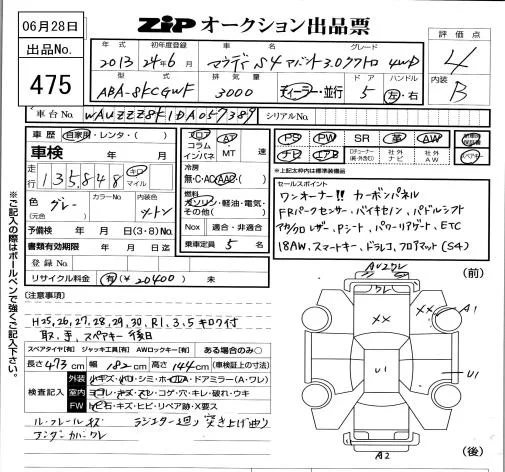 06月28日
ZiPオークション出品票
評価点
4
内装
B
出品No.
475
年式 初年度登録 車名 グレード
2013 24年6月 アウディ S4 アバント 3.0クワトロ 4WD
型式 排気量 ドア ハンドル
ABA-8KCGWF 3000 ディーラー・並行 5 左・右
車台No. WAUZZZ8K1DA057389 シリアルNo.
車歴 自家用・レンタ( )
車検 年 月
走行 135,848 キロ マイル
色 グレー (元色) カラーNo 内装色
予備検 年 月 日(3・8)No.
書類有効期限 年 月 日
登録No.
リサイクル料金 有(¥20400 )未
フロア コラム インパネ AT・MT 速
冷房 無・C・AC・AAC( )
燃料 ガソリン・軽油・電気・その他( )
Nox 適合・非適合
乗車定員 5 名
PS PW SR 革 AW
ナビ エアB Dチューナー(純・外含む) 社外ナビ 社外AW
*上記太枠内は標準装備品
セールスポイント
ワンオーナー!! カーボンパネル
FRパークセンサー・バイキセノン、パドルシフト
レザー、Pシート、パワーリアゲート、ETC
18AW、スマートキー、ドラレコ、フロアマット(S4)
※ご記入の際はボールペンで強くご記入下さい。
[注意事項]
H25,26,27,28,29,30,R1,3,5 キロク付
取、書、スペアキー後日
スペアタイヤ[有] ジャッキ工具[有] AWロックキー[有] ある場合のみ○
長さ 473 cm 幅 182 cm 高さ 144 cm (車検証上の寸法)
検査記入
外装 小キズ・小凹・シミ・ホイルA・ドアミラー(A・ワレ)
室内 ヨゴレ・キズ・スレ・コゲ・穴・キレ・破れ・ウキ
FW トビ石・キズ・ヒビ・リペア跡・X要ス
ルーフレールスス ラジエター廻り突き上げ曲り
アンダーカバーワレ
(前)
AU2ワレ
ワレ
XX
XX
A1
U1
U1
A2
(後)